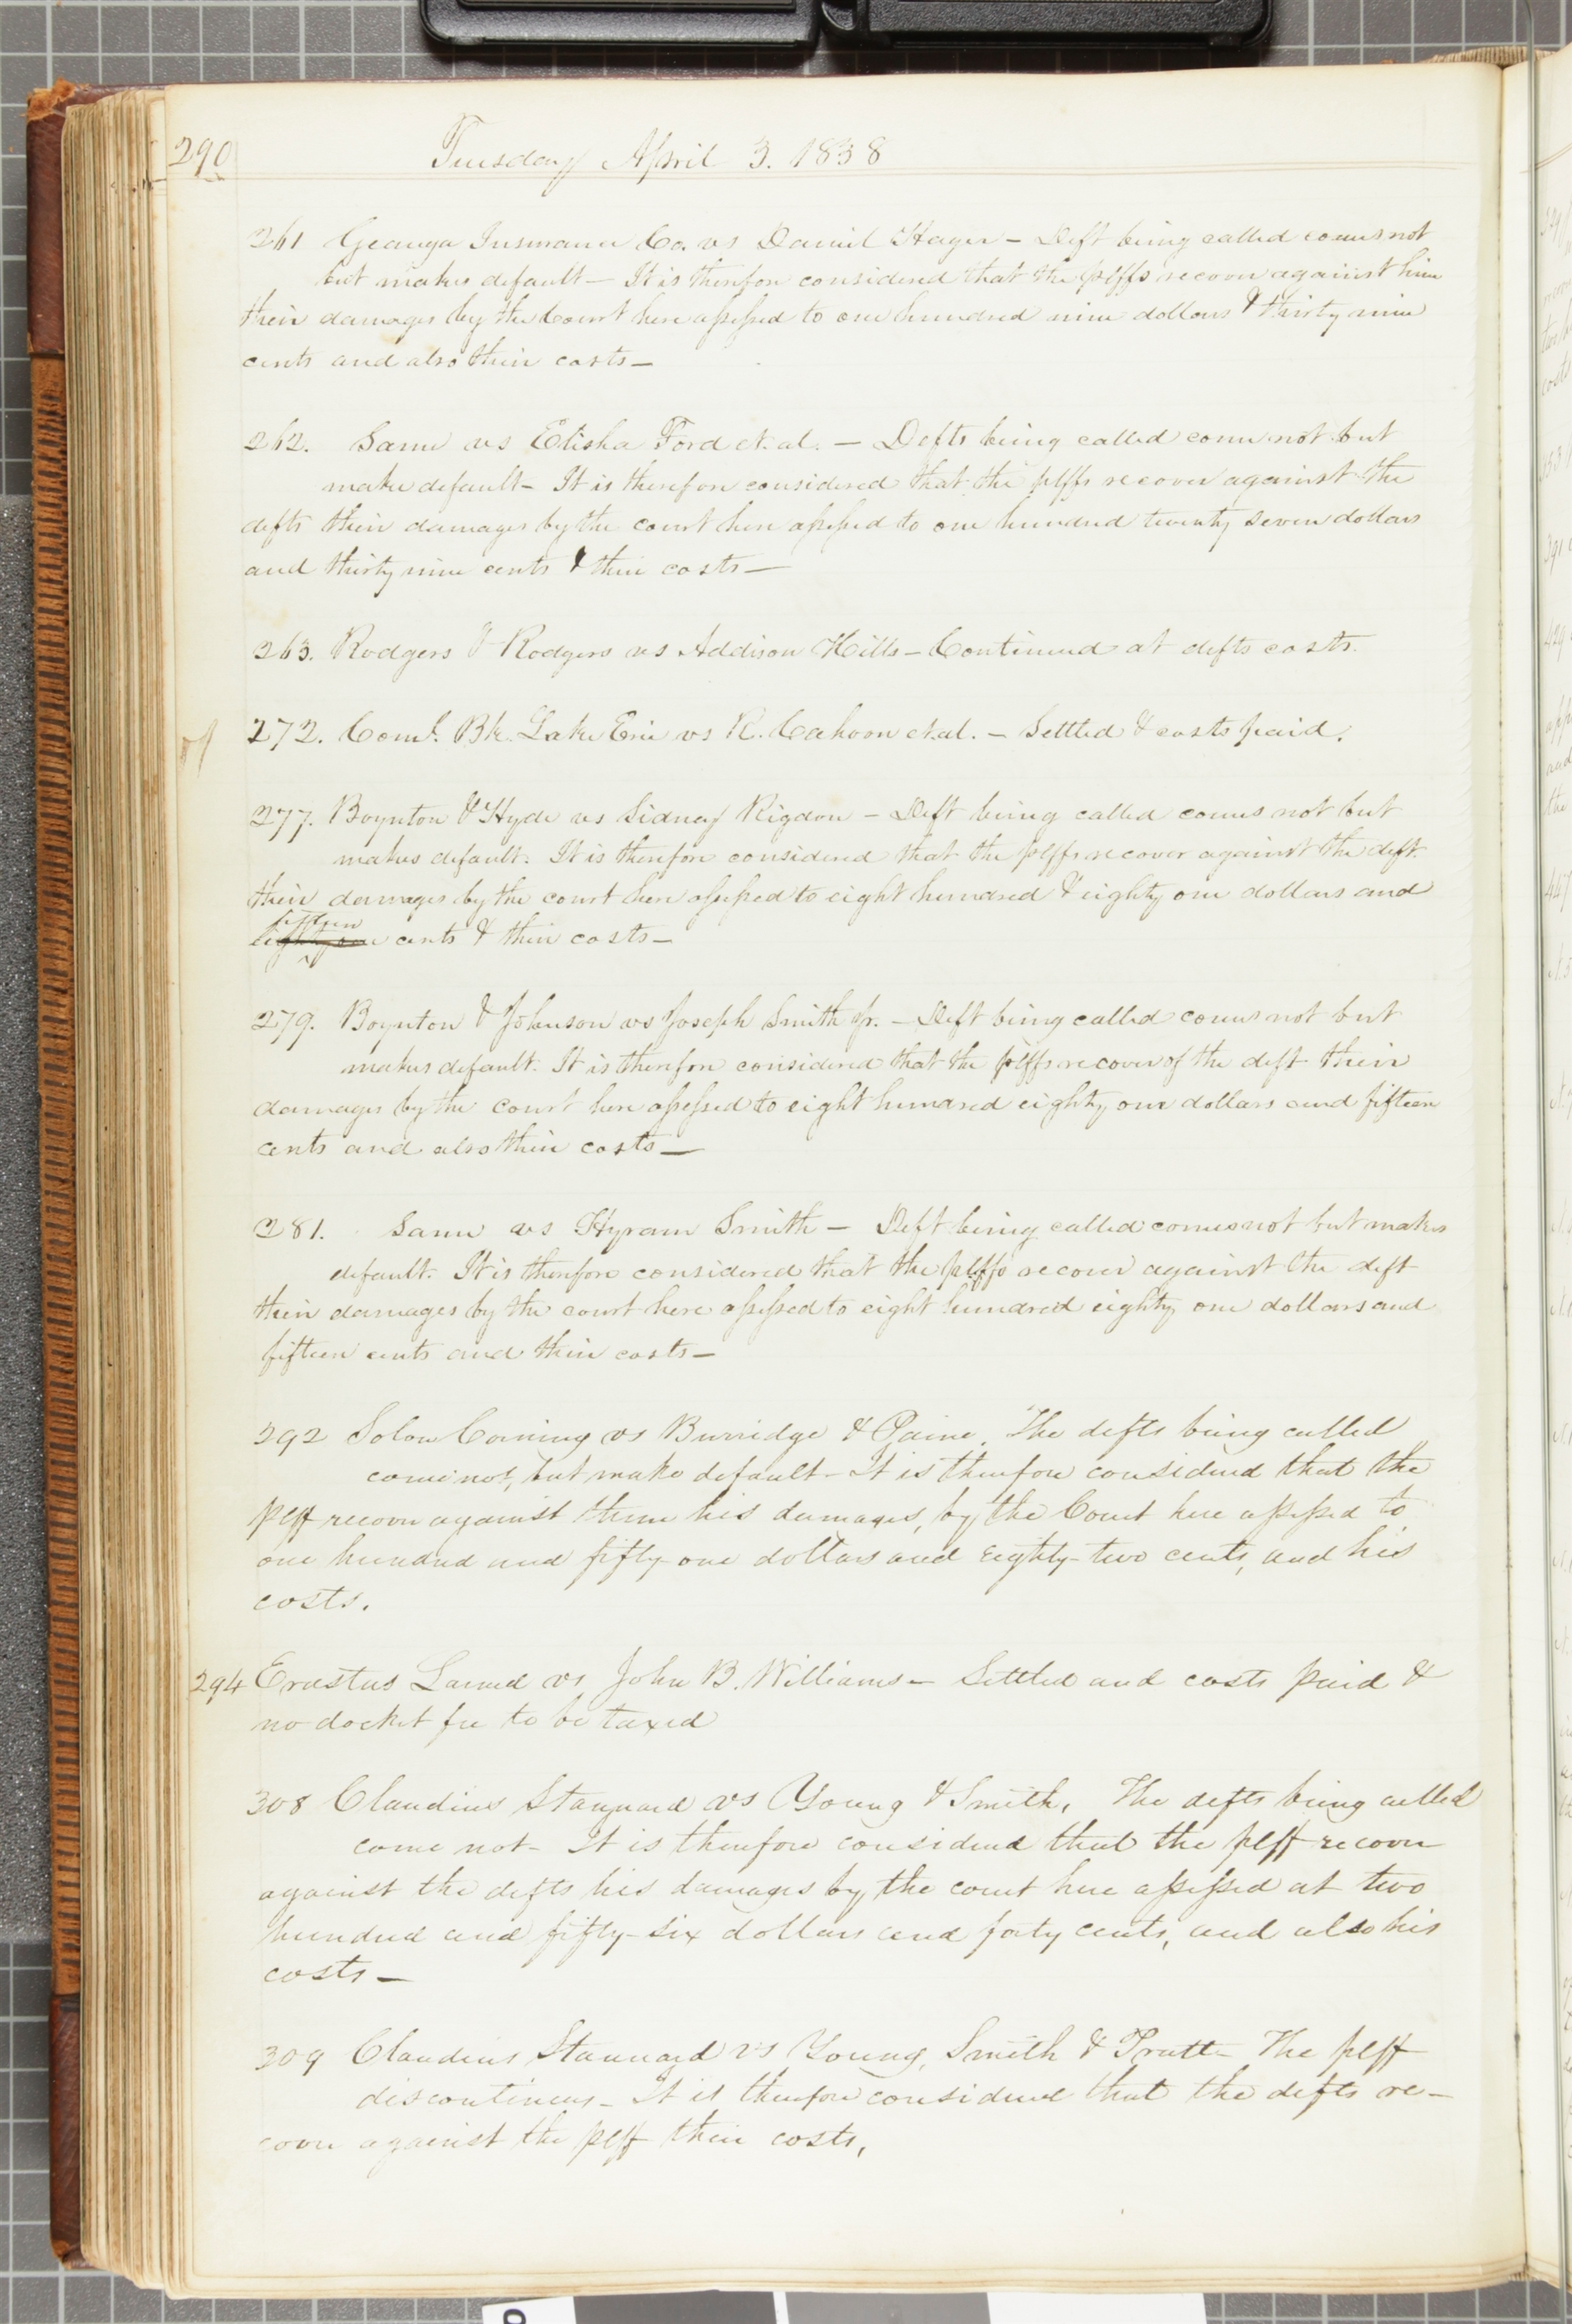 290 Tuesday April 3. 1838
261 Geauga Insurance Co. vs Daniel Hager – Deft being called comes not
but makes default – It is therefore considered that the plffs recover against him
their damages by the Court here assessed to one hundred nine dollars & thirty nine
cents and also their costs –
262. Same vs Elisha Ford et. al. – Defts being called come not but
make default – It is therefore considered that the plffs recover against the
defts their damages by the court here assessed to one hundred twenty seven dollars
and thirty nine cents & their costs –
263. Rodgers & Rodgers vs Addison Hills – Continued at defts costs.
272. Coml. Bk. Lake Erie vs R. Cahoon et. al. – Settled & costs paid.
277. Boynton & Hyde vs Sidney Rigdon – Deft being called comes not but
makes default. It is therefore considered that the plffs recover against the deft.
their damages by the court here assessed to eight hundred & eighty one dollars and
fifteen
eighty one cents & their costs –
279. Boynton & Johnson vs Joseph Smith Jr. – Deft being called comes not but
makes default. It is therefore considered that the plffs recover of the deft their
damages by the court here assessed to eight hundred eighty one dollars and fifteen
cents and also their costs –
281. Same vs Hyram Smith – Deft being called comes not but makes
default. It is therefore considered that the plffs recover against the deft
their damages by the court here assessed to eight hundred eighty one dollars and
fifteen cents and their costs –
292 Solon Corning vs Burridge & Paine. The defts being called
come not, but make default – It is therefore considered that the
plff recover against them his damages, by the Court here assessed to
one hundred and fifty-one dollars and eighty-two cents, and his
costs.
294 Erastus Larned vs John B. Williams – Settled and costs paid &
no docket fee to be taxed
308 Claudius Stannard vs Young & Smith. The defts being called
come not – It is therefore considered that the plff recover
against the defts his damages by the court here assessed at two
hundred and fifty-six dollars and forty cents, and also his
costs –
309 Claudius Stannard vs Young, Smith & Pratt – The plff
discontinues – It is therefore considered that the defts re-
cover against the plff their costs,